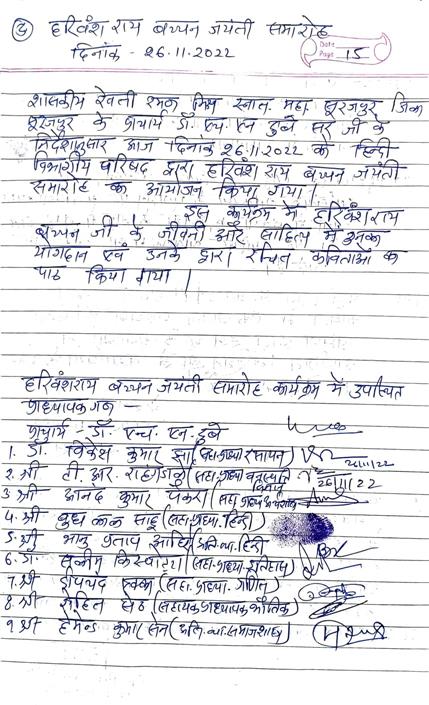 हरिवंश राय बच्चन जयंती समारोह
दिनांक - 26.11.2022
Date
Page 15
शासकीय रेवती रमण मिश्र स्नात. महा सूरजपुर जिला
सूरजपुर के प्राचार्य डॉ. एच. एन दुबे सर जी के
निर्देशानुसार आज दिनांक 26.11.2022 को हिन्दी
विभागीय परिषद द्वारा हरिवंश राय बच्चन जयंती
समारोह का आयोजन किया गया।
इस कार्यक्रम में हरिवंश राय
बच्चन जी के जीवनी और साहित्य में उनका
योगदान एवं उनके द्वारा रचित कविताओं का
पाठ किया गया।
हरिवंशराय बच्चन जयंती समारोह कार्यक्रम में उपस्थित
प्राध्यापक गन —
प्राचार्य - डॉ. एच. एन. दुबे
1. डॉ. विकेश कुमार झा (सहा. प्राध्या. रसायन)
26/11/22
2. श्री टी. आर. राहंगडाले (सहा. प्राध्या. वनस्पति विज्ञान)
26/11/22
3 श्री आनंद कुमार पैकरा (सहा. प्राध्या.
4. श्री बुध लाल साहू (सहा. प्राध्या. हिन्दी)
5. श्री भानु प्रताप आदि अति. व्या. हिन्दी
6. डॉ. किस्पोट्टा (सहा. प्राध्या. इतिहास)
7. श्री दीपचंद एक्का (सहा. प्राध्या. गणित)
8. श्री रोहित सेठ (सहायक प्राध्यापक भौतिक)
9 श्री हेमन्त कुमार सेन (अति. व्या. समाजशास्त्र)